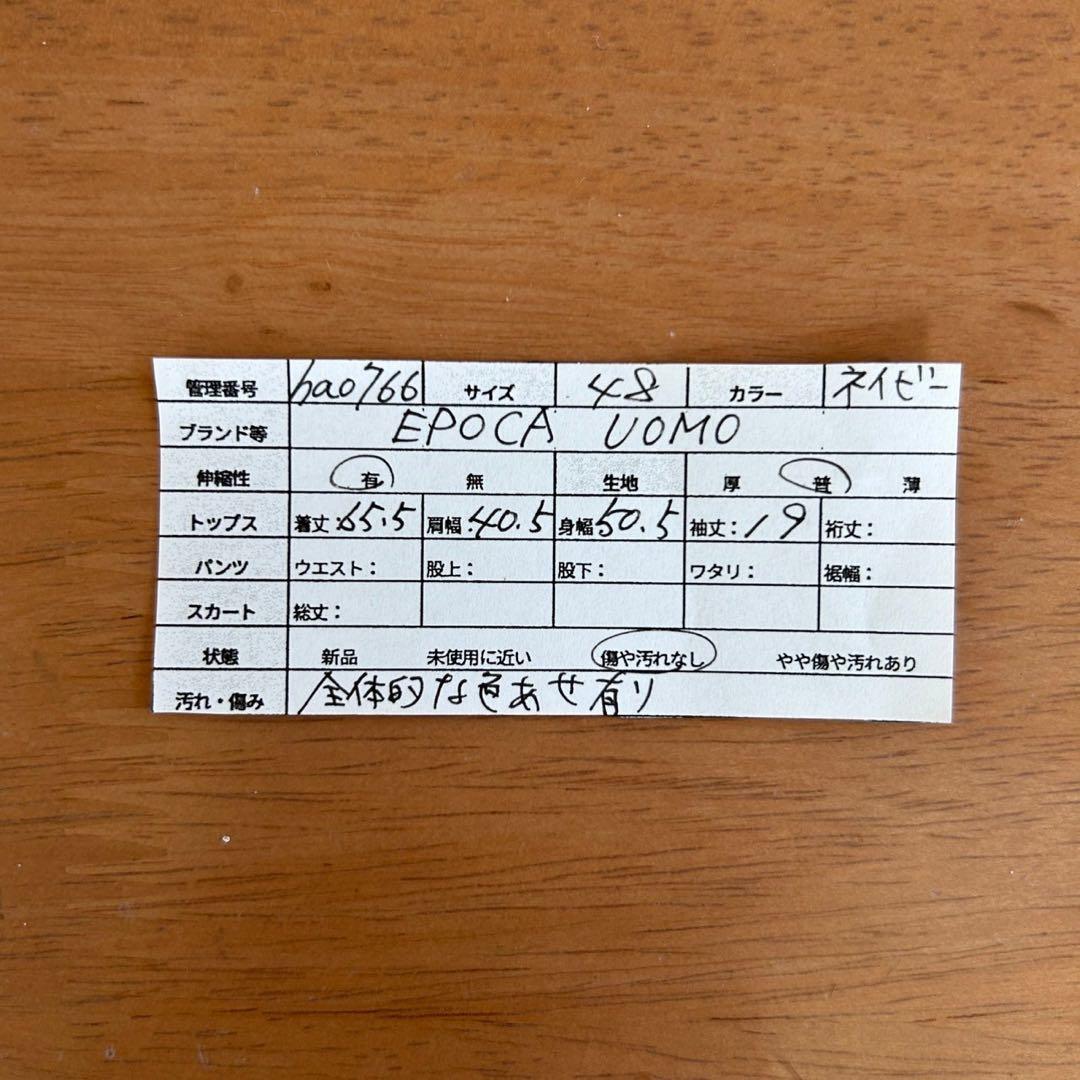 管理番号 hao766 サイズ 48 カラー ネイビー
ブランド等 EPOCA UOMO
伸縮性 有 無 生地 厚 普 薄
トップス 着丈:65.5 肩幅:40.5 身幅:50.5 袖丈:19 裄丈:
パンツ ウエスト: 股上: 股下: ワタリ: 裾幅:
スカート 総丈:
状態 新品 未使用に近い 傷や汚れなし やや傷や汚れあり
汚れ・傷み 全体的な色あせ有り